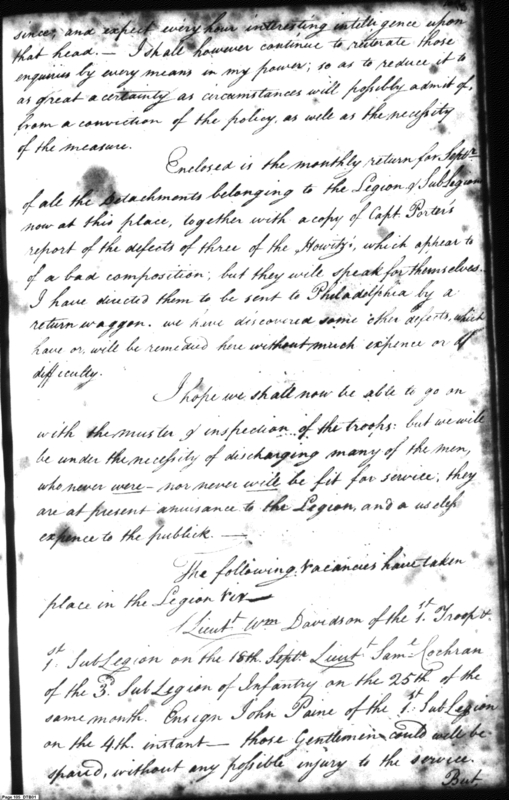 since, and expect every hour interesting intelligence upon
that head. — I shall however continue to reiterate those
enquiries by every means in my power; so as to reduce it to
as great a certainty as circumstances will possibly admit of,
from a conviction of the policy, as well as the necessity
of the measure.
Enclosed is the monthly return for Septr
of all the Detachments belonging to the Legion & Sub Legion
now at this place, together with a copy of Capt Porter's
report of the defects of three of the Howitzs, which appear to
of a bad composition; but they will speak for themselves.
I have directed them to be sent to Philadelphia by a
return waggon. we have discovered some other defects, which
have or, will be remedied here without much expence or
difficulty.
I hope we shall now be able to go on
with the muster & inspection of the troops: but we will
be under the necessity of discharging many of the men,
who never were — nor never will be fit for service; they
are at present a nuisance to the Legion, and a useless
expence to the publick. —
The following vacancies have taken
place in the Legion viz —
Lieut Wm Davidson of the 1st Troop &
1st Sub Legion on the 18th Septr Lieut Saml Cochran
of the 3d Sub Legion of Infantry on the 25th of the
same month. Ensign John Paine of the 1st Sub Legion
on the 4th instant — those Gentlemen could well be
spared, without any possible injury to the service.
But
Page 169